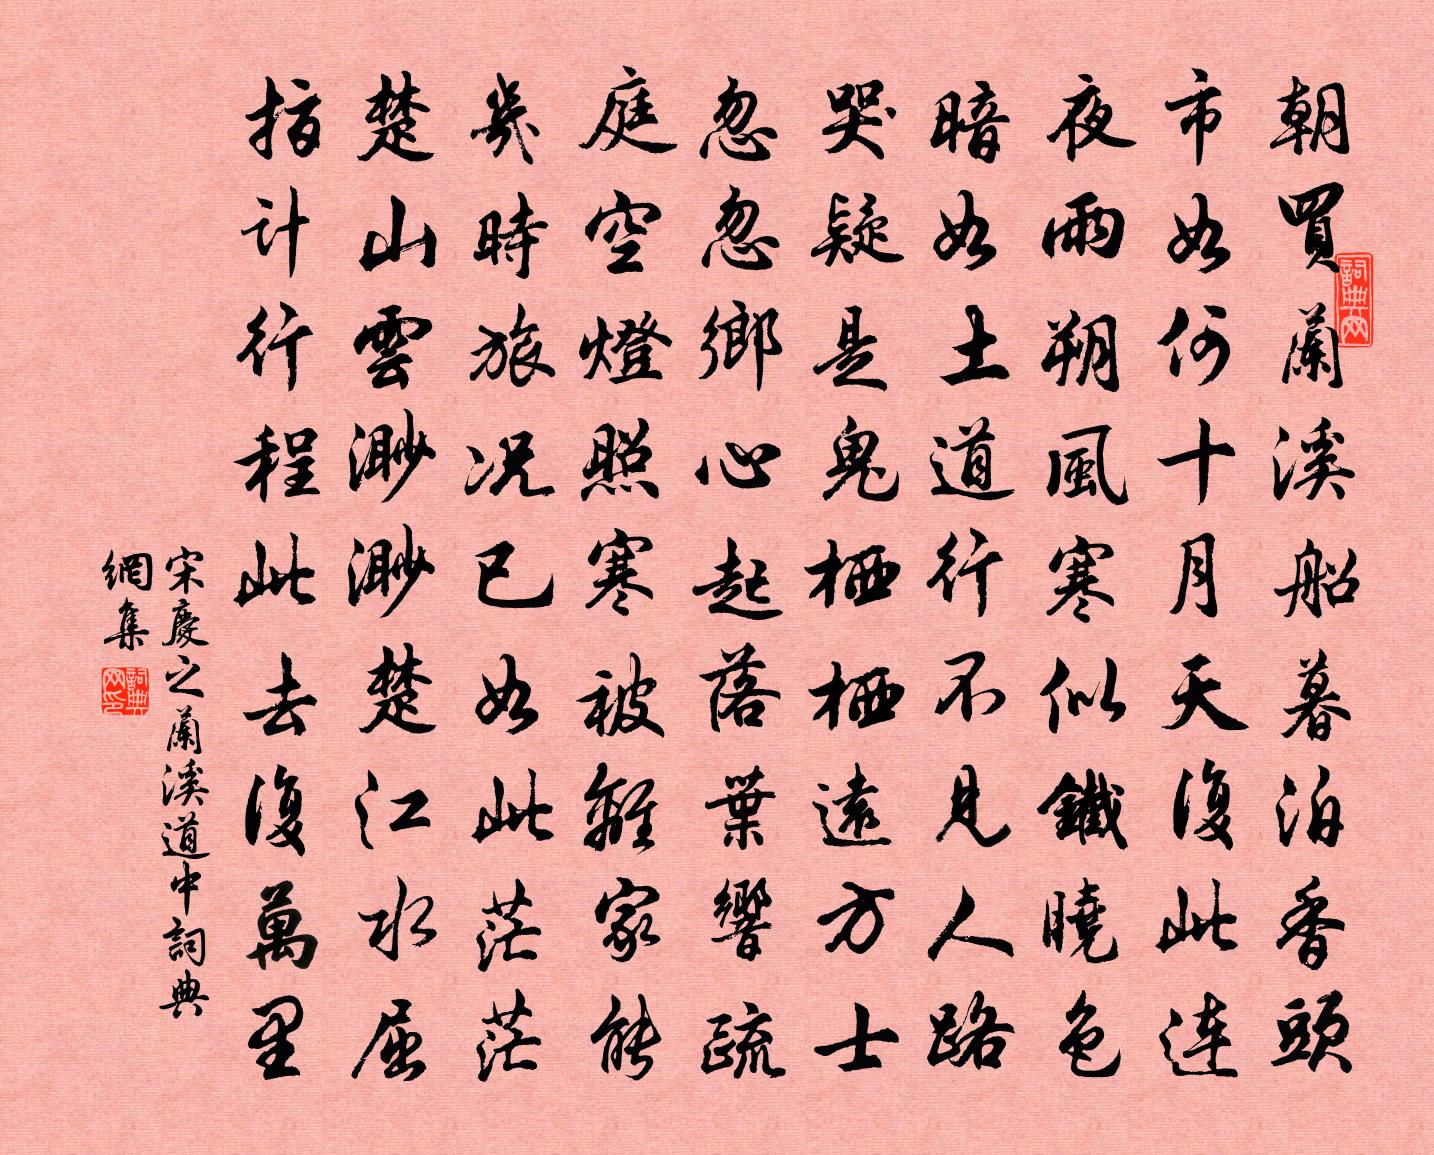 朝買蘭溪船暮泊香頭
市如何十月天復此连
夜雨朔風寒似鐵曉色
暗如土道行不見人路
哭疑是鬼栖栖遠方士
忽忽鄉心起落葉響疏
庭空燈照寒被離家能
幾時旅况已如此茫茫
楚山雲渺渺楚江水屈
指计行程此去復萬里
宋慶之蘭溪道中詞典
網集
詞典网
詞典网印